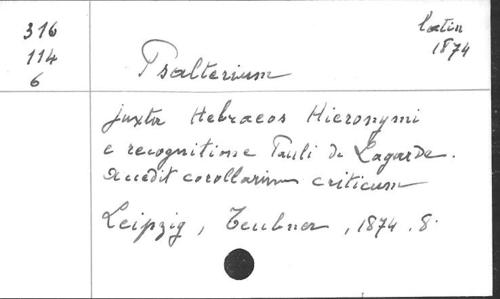 316
114
6
latin
1874
Psalterium
juxta Hebraeos Hieronymi
e recognitione Pauli de Lagarde.
Accedit corollarium criticum
Leipzig, Teubner, 1874. 8.